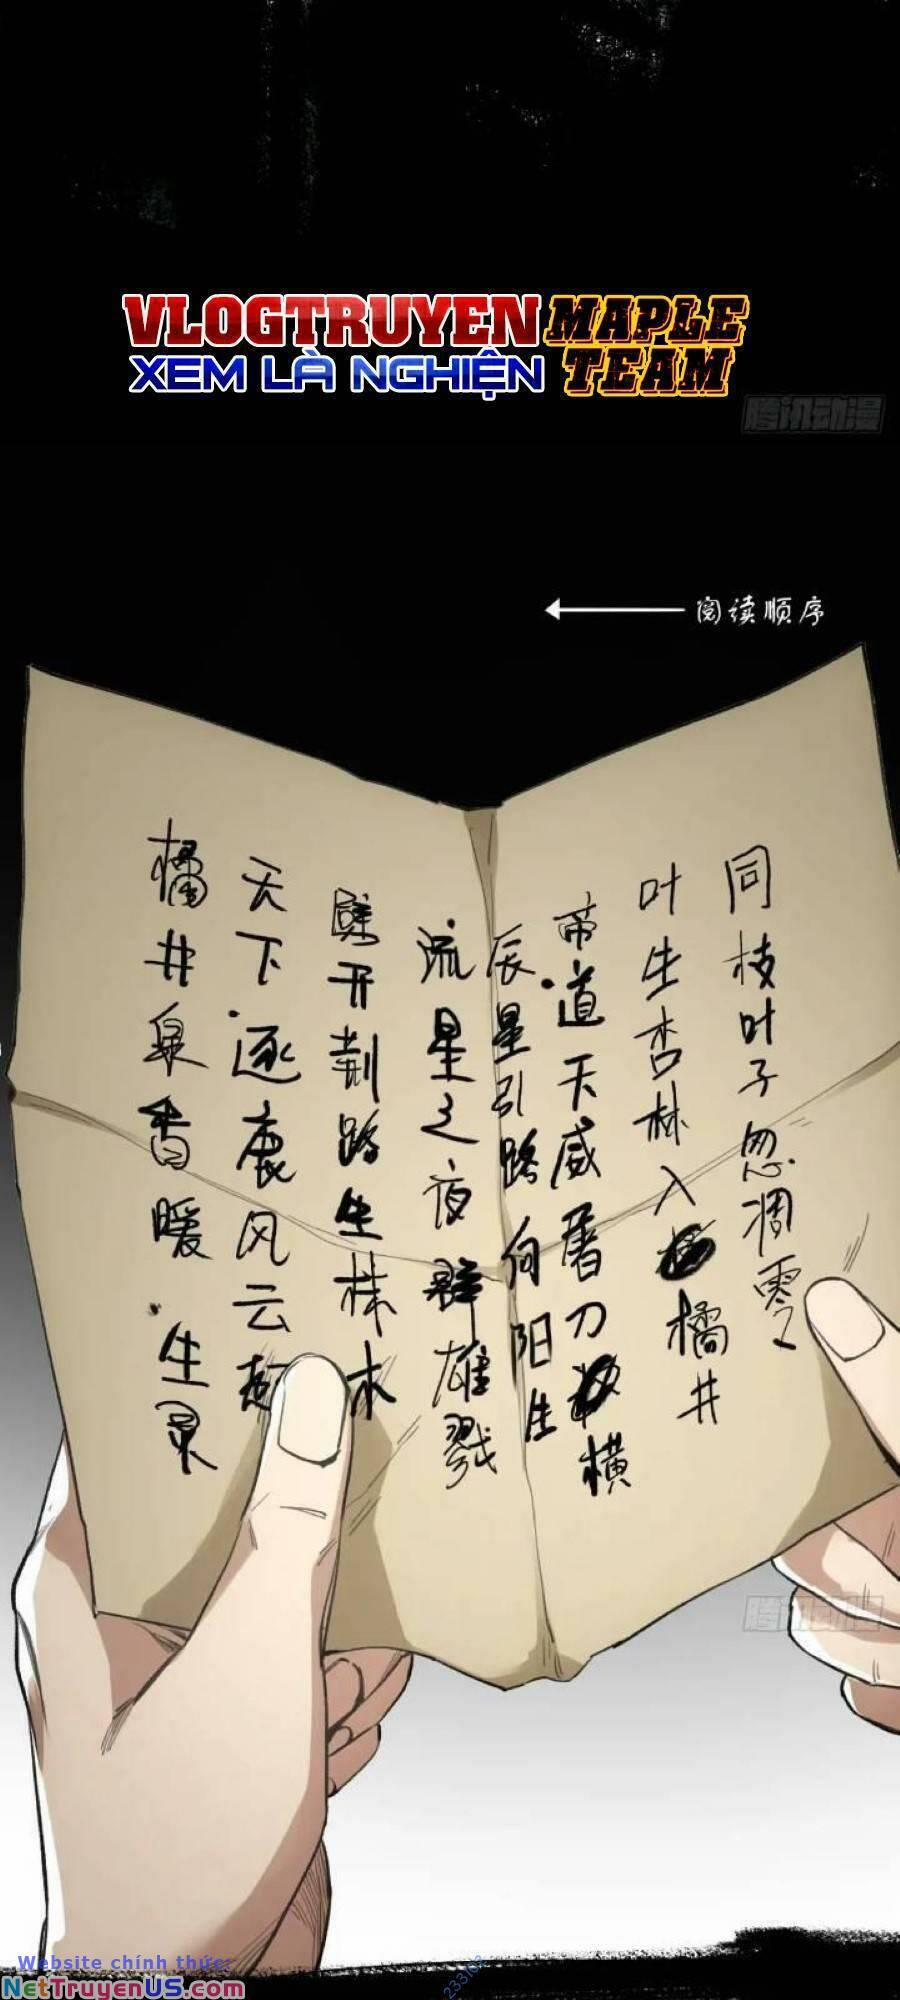 VLOGTRUYEN MAPLE
XEM LÀ NGHIỆN TEAM
腾讯动漫
阅读顺序
同枝叶子忽凋零
叶生杏林入橘井
帝道天威屠刀横
辰星引路向阳生
流星之夜群雄戮
劈开荆路生株木
天下逐鹿风云起
橘井泉香暖生灵
腾讯动漫
Website chính thức:
NetTruyenUS.com
233102